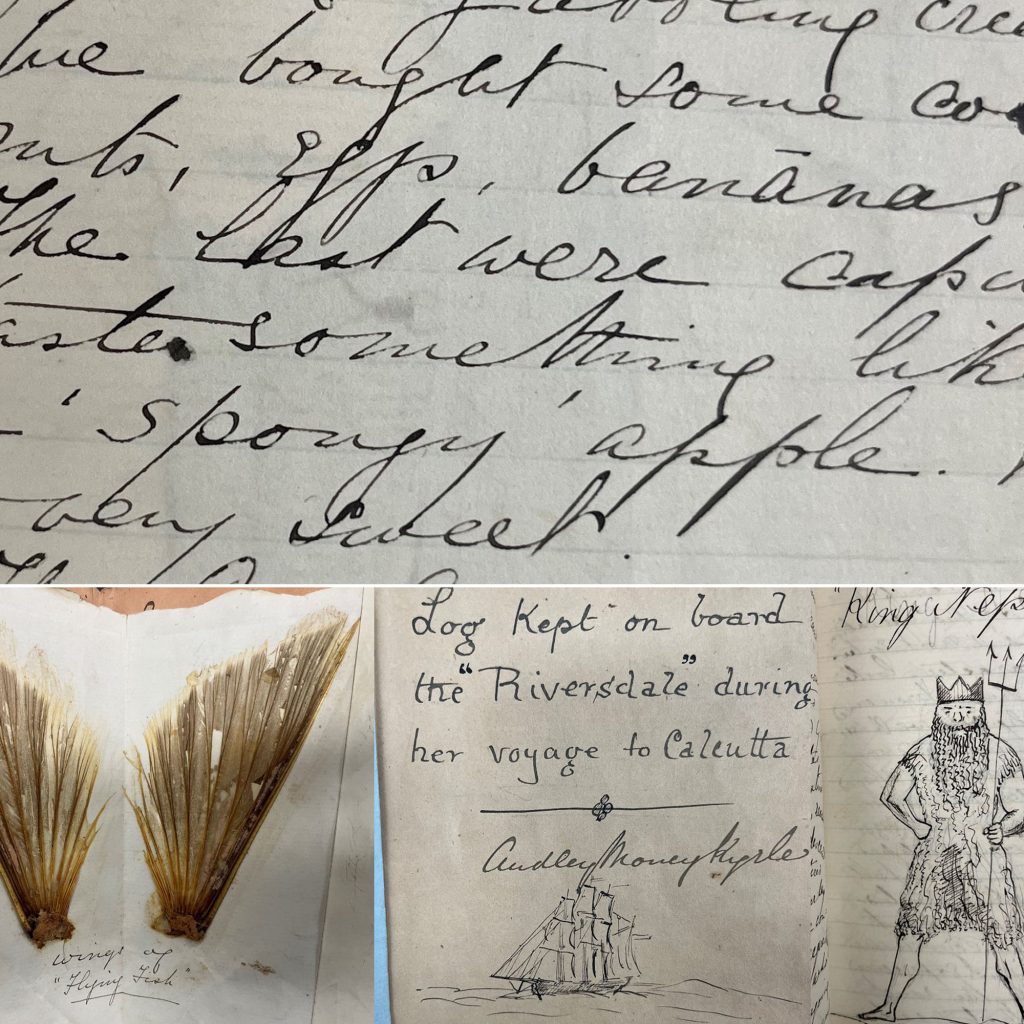 bought some coc
nuts, eggs, bananas,
The last were capi
taste something lik
'spongy' apple.
very sweet.
wings of
"Flying Fish"
Log Kept on board
the "Riversdale" during
her voyage to Calcutta
Audley Money Kyrle
"King Nep